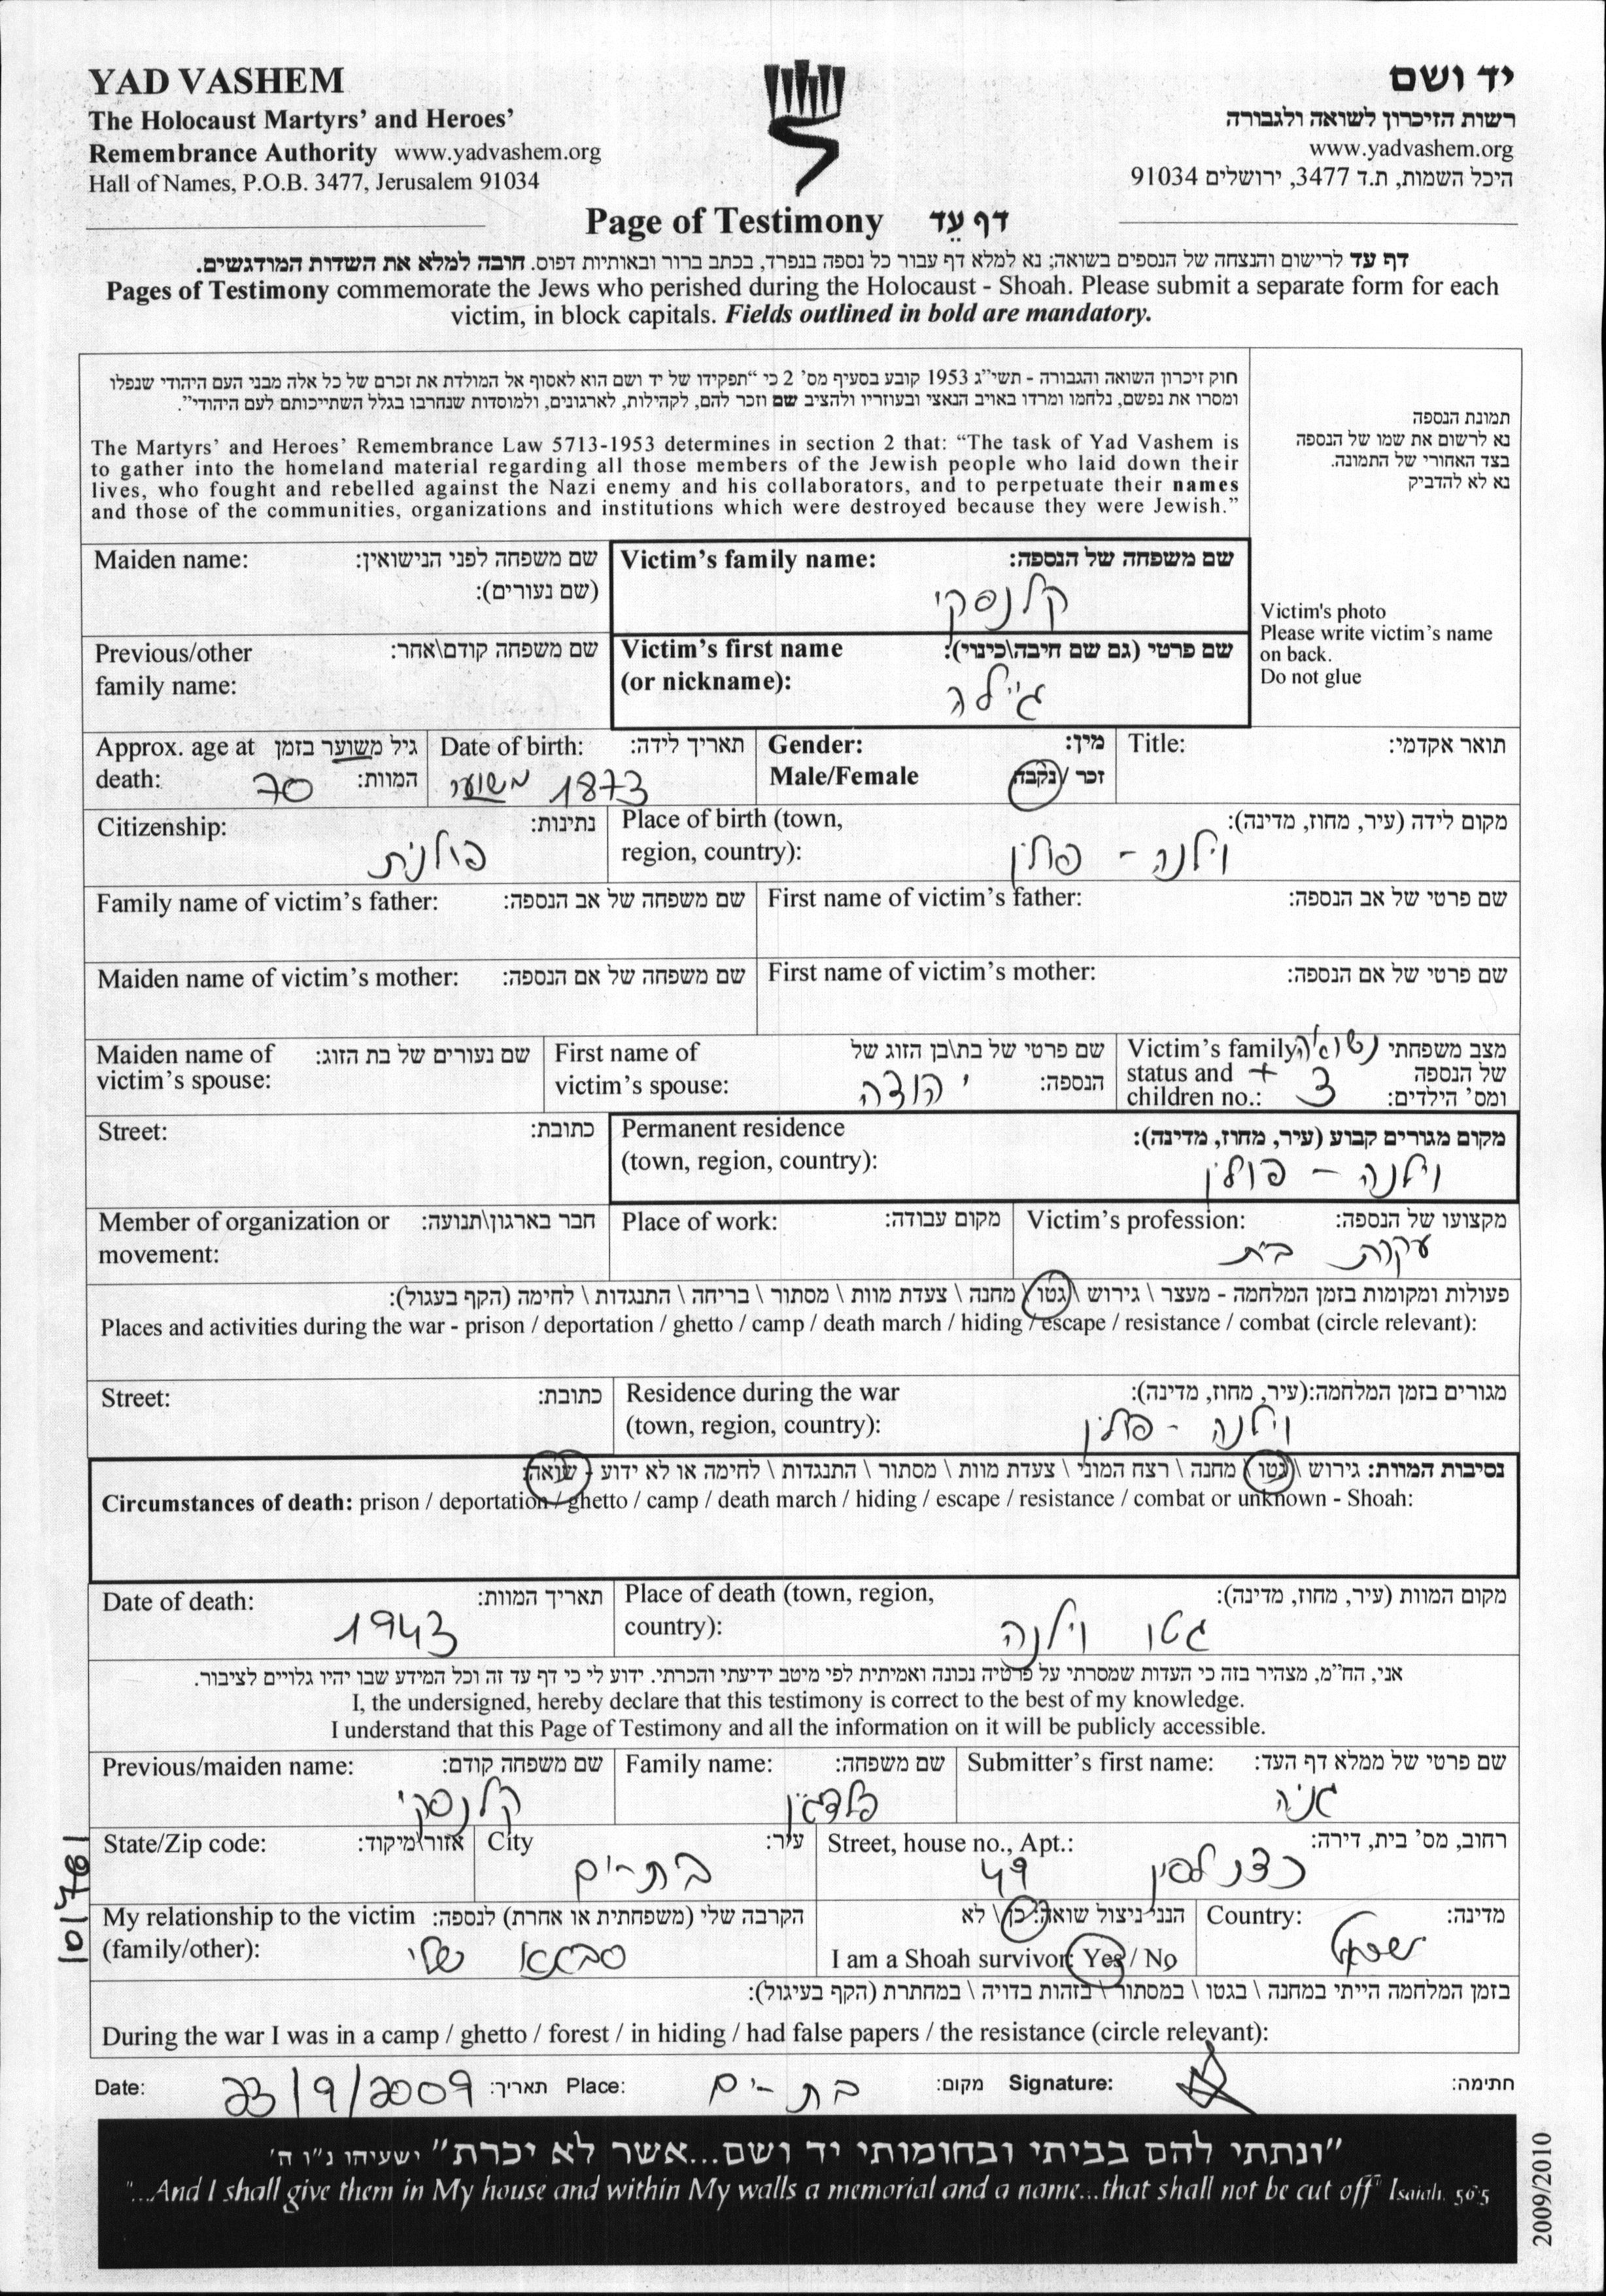 YAD VASHEM
The Holocaust Martyrs' and Heroes'
Remembrance Authority www.yadvashem.org
Hall of Names, P.O.B. 3477, Jerusalem 91034
יד ושם
רשות הזיכרון לשואה ולגבורה
www.yadvashem.org
היכל השמות, ת.ד 3477, ירושלים 91034
Page of Testimony דף עֵד
דף עד לרישום והנצחה של הנספים בשואה; נא למלא דף עבור כל נספה בנפרד, בכתב ברור ובאותיות דפוס. חובה למלא את השדות המודגשים.
Pages of Testimony commemorate the Jews who perished during the Holocaust - Shoah. Please submit a separate form for each
victim, in block capitals. Fields outlined in bold are mandatory.
חוק זיכרון השואה והגבורה - תשי"ג 1953 קובע בסעיף מס' 2 כי "תפקידו של יד ושם הוא לאסוף אל המולדת את זכרם של כל אלה מבני העם היהודי שנפלו
ומסרו את נפשם, נלחמו ומרדו באויב הנאצי ובעוזריו ולהציב שם וזכר להם, לקהילות, לארגונים, ולמוסדות שנחרבו בגלל השתייכותם לעם היהודי".
The Martyrs' and Heroes' Remembrance Law 5713-1953 determines in section 2 that: "The task of Yad Vashem is
to gather into the homeland material regarding all those members of the Jewish people who laid down their
lives, who fought and rebelled against the Nazi enemy and his collaborators, and to perpetuate their names
and those of the communities, organizations and institutions which were destroyed because they were Jewish."
תמונת הנספה
נא לרשום את שמו של הנספה
בצד האחורי של התמונה.
נא לא להדביק
Victim's photo
Please write victim's name
on back.
Do not glue
Maiden name: שם משפחה לפני הנישואין:
(שם נעורים):
Victim's family name: שם משפחה של הנספה:
קלנסקי
Previous/other שם משפחה קודם\אחר:
family name:
Victim's first name שם פרטי (גם שם חיבה\כינוי):
(or nickname):
ג'ילה
Approx. age at גיל משוער בזמן
death: 70 המוות:
Date of birth: תאריך לידה:
1873 משוער
Gender: מין:
Male/Female זכר / נקבה
Title: תואר אקדמי:
Citizenship: נתינות:
פולנית
Place of birth (town, מקום לידה (עיר, מחוז, מדינה):
region, country): וילנה - פולין
Family name of victim's father: שם משפחה של אב הנספה:
First name of victim's father: שם פרטי של אב הנספה:
Maiden name of victim's mother: שם משפחה של אם הנספה:
First name of victim's mother: שם פרטי של אם הנספה:
Maiden name of שם נעורים של בת הזוג:
victim's spouse:
First name of שם פרטי של בת\בן הזוג של
victim's spouse: יהודה הנספה:
Victim's family נשואה מצב משפחתי
status and + של הנספה
children no.: 3 ומס' הילדים:
Street: כתובת:
Permanent residence מקום מגורים קבוע (עיר, מחוז, מדינה):
(town, region, country): וילנה - פולין
Member of organization or חבר בארגון\תנועה:
movement:
Place of work: מקום עבודה:
Victim's profession: מקצועו של הנספה:
עקרת בית
פעולות ומקומות בזמן המלחמה - מעצר \ גירוש \ גטו \ מחנה \ צעדת מוות \ מסתור \ בריחה \ התנגדות \ לחימה (הקף בעגול):
Places and activities during the war - prison / deportation / ghetto / camp / death march / hiding / escape / resistance / combat (circle relevant):
Street: כתובת:
Residence during the war מגורים בזמן המלחמה:(עיר, מחוז, מדינה):
(town, region, country): וילנה - פולין
נסיבות המוות: גירוש \ גטו \ מחנה \ רצח המוני \ צעדת מוות \ מסתור \ התנגדות \ לחימה או לא ידוע - שואה:
Circumstances of death: prison / deportation / ghetto / camp / death march / hiding / escape / resistance / combat or unknown - Shoah:
Date of death: תאריך המוות:
1943
Place of death (town, region, מקום המוות (עיר, מחוז, מדינה):
country): גטו וילנה
אני, הח"מ, מצהיר בזה כי העדות שמסרתי על פרטיה נכונה ואמיתית לפי מיטב ידיעתי והכרתי. ידוע לי כי דף עד זה וכל המידע שבו יהיו גלויים לציבור.
I, the undersigned, hereby declare that this testimony is correct to the best of my knowledge.
I understand that this Page of Testimony and all the information on it will be publicly accessible.
Previous/maiden name: שם משפחה קודם:
קלנסקי
Family name: שם משפחה:
Submitter's first name: שם פרטי של ממלא דף העד:
אניה
State/Zip code: אזור\מיקוד:
City עיר:
בת-ים
Street, house no., Apt.: רחוב, מס' בית, דירה:
כצנלסון 49
My relationship to the victim הקרבה שלי (משפחתית או אחרת) לנספה:
(family/other): סבתא שלי
הנני ניצול שואה: כן \ לא
I am a Shoah survivor: Yes / No
Country: מדינה:
ישראל
בזמן המלחמה הייתי במחנה \ בגטו \ במסתור \ בזהות בדויה \ במחתרת (הקף בעיגול):
During the war I was in a camp / ghetto / forest / in hiding / had false papers / the resistance (circle relevant):
Date: 23/9/2009 תאריך: Place: בת-ים מקום: Signature: חתימה:
"ונתתי להם בביתי ובחומותי יד ושם...אשר לא יכרת" ישעיהו נ"ו ה'
"...And I shall give them in My house and within My walls a memorial and a name...that shall not be cut off" Isaiah, 56:5
2009/2010